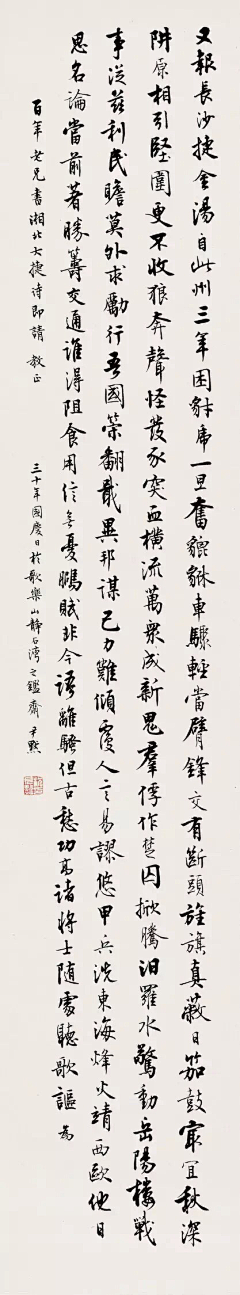 又報長沙捷金湯自此州三年困豺虎一旦奮貔貅車驟輕當臂鋒交有斷頭旌旗真蔽日笳鼓宜秋深
阱原相引堅圍更不收狼奔聲怪發豕突血橫流萬衆成新鬼羣俘作楚囚掀騰汨羅水驚動岳陽樓戰
事從茲利民瞻莫外求勵行吾國策翻戢異邦謀己力難傾覆人言易謬悠甲兵洗東海烽火靖西歐他日
思名論當前著勝籌交通誰得阻食用信無憂鵬賦非今語離騷但古愁功高諸將士隨處聽歌謳 爲
百年老兄書湘北大捷詩即請 教正
三十年國慶日於歌樂山靜石灣之鑑齋 尹默